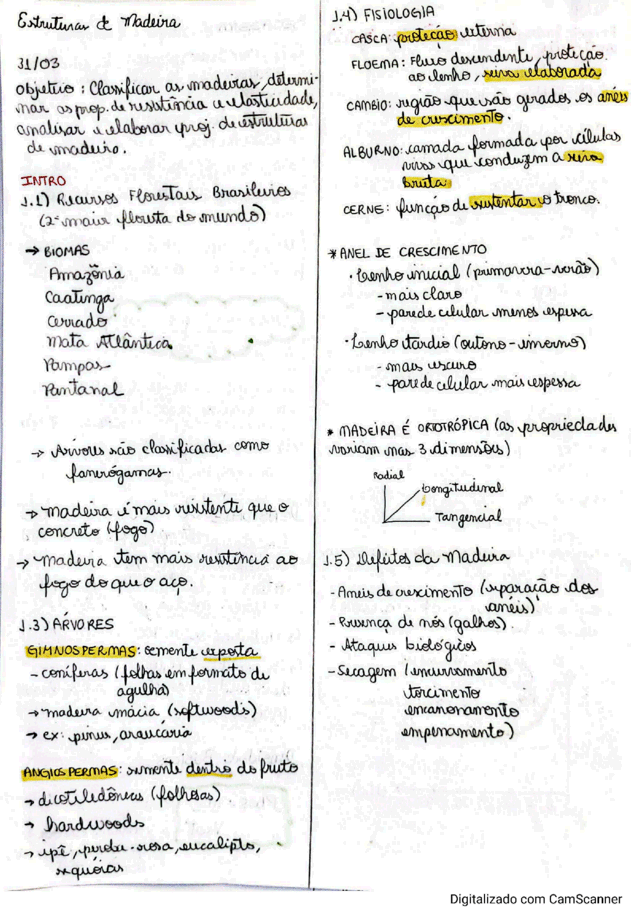 Estruturas de Madeira
31/03
objetivo: Classificar as madeiras, determi-
nar as prop. de resistência e elasticidade,
analisar e elaborar proj. de estruturas
de madeira.
INTRO
1.1) Recursos Florestais Brasileiros
(2ª maior floresta do mundo)
→ BIOMAS
Amazônia
Caatinga
Cerrado
Mata Atlântica
Pampas
Pantanal
→ Árvores são classificadas como
fanerógamas.
→ madeira é mais resistente que o
concreto (fogo)
→ madeira tem mais resistência ao
fogo do que o aço.
1.3) ÁRVORES
GIMNOSPERMAS: semente exposta
- coníferas (folhas em formato de
agulha)
→ madeira macia (softwoods)
→ ex: pinus, araucária
ANGIOSPERMAS: semente dentro do fruto
→ dicotiledôneas (folhosas)
→ hardwoods
→ ipê, peroba-rosa, eucalipto,
sequóias
1.4) FISIOLOGIA
CASCA: proteção externa
FLOEMA: Fluxo descendente, proteção
ao lenho, seiva elaborada
CAMBIO: região que são gerados os anéis
de crescimento.
ALBURNO: camada formada por células
vivas que conduzem a seiva
bruta
CERNE: função de sustentar o tronco.
* ANEL DE CRESCIMENTO
· Lenho inicial (primavera-verão)
- mais claro
- parede celular menos espessa
· Lenho tardio (outono-inverno)
- mais escuro
- parede celular mais espessa
* MADEIRA É ORTOTRÓPICA (as propriedades
variam nas 3 dimensões)
radial
longitudinal
Tangencial
1.5) Defeitos da Madeira
- Aneis de crescimento (separação dos
anéis)
- Presença de nós (galhos).
- Ataques biológicos
- Secagem (encurvamento
torcimento
encanoamento
empenamento)
Digitalizado com CamScanner